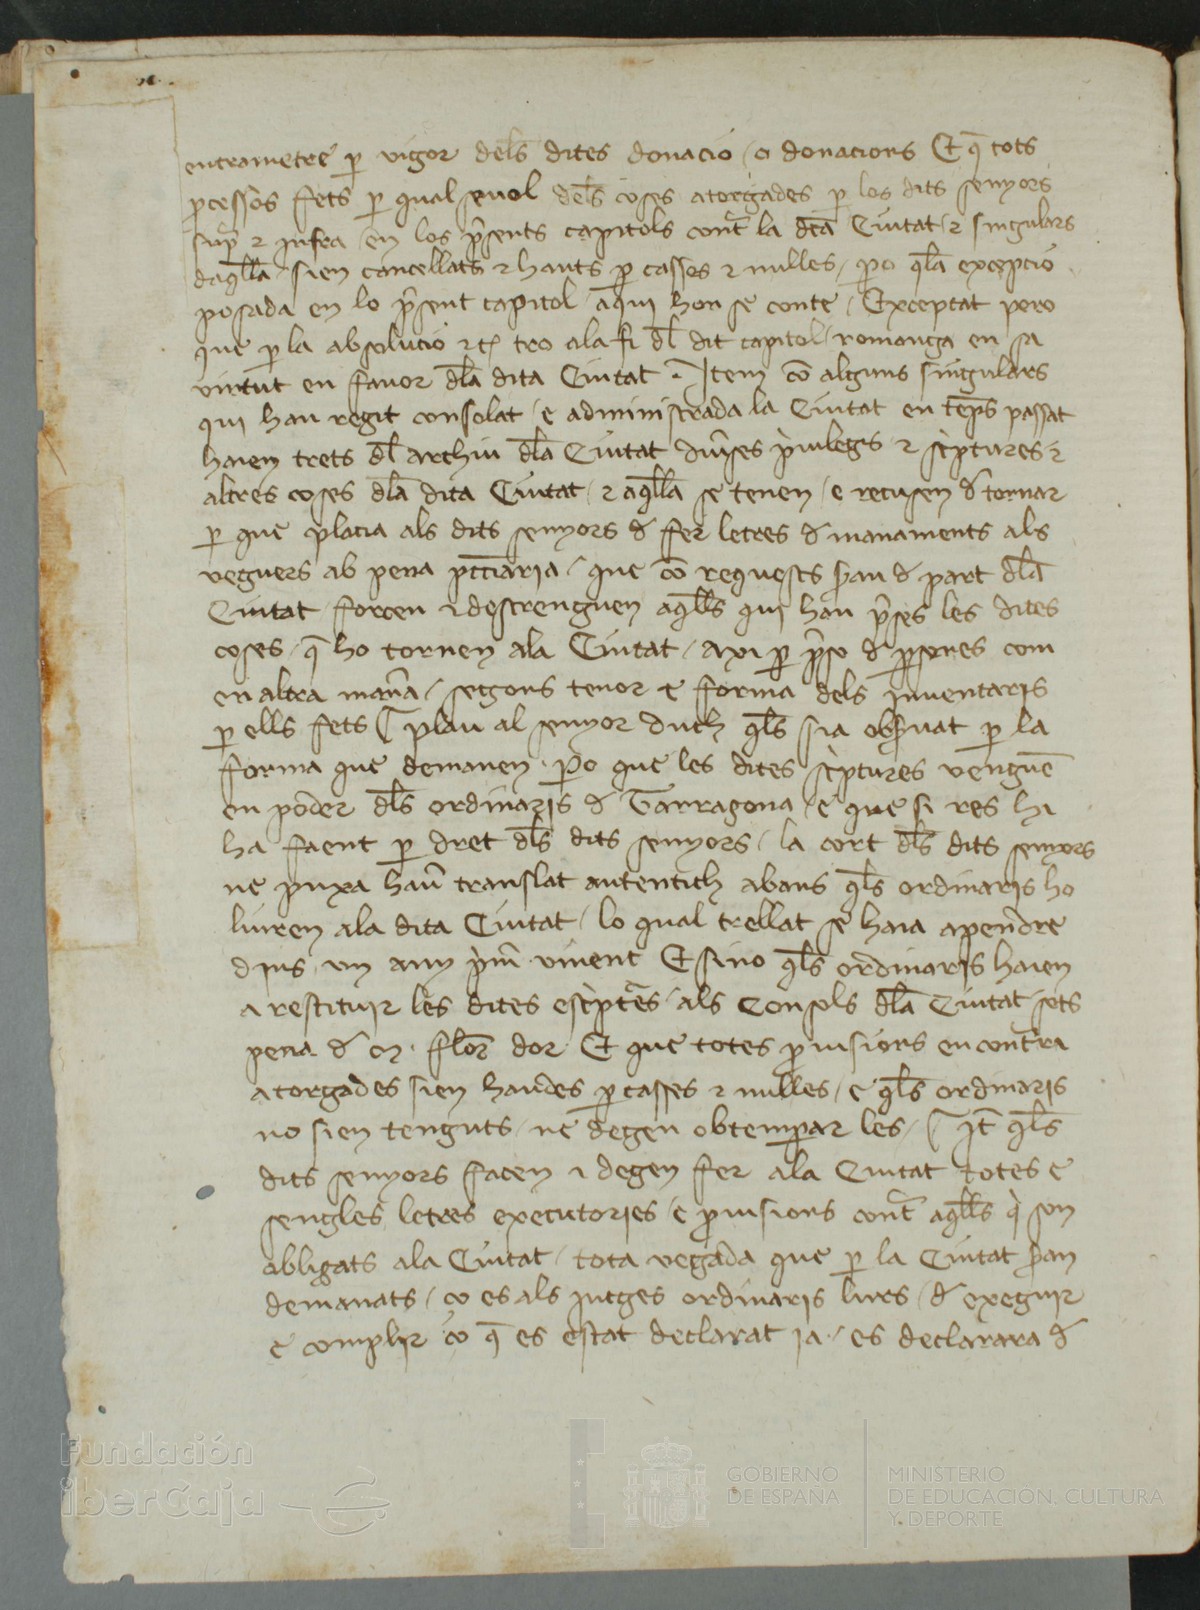 entrametre p vigor dels dites donacio / o donacions Et q̄ tots
pcessos fets p qual seuol dels coses atorgades p los dits senyors
sup̄ ⁊ jnfra en los p̄sents capitols cont̄ la dc̄a Ciutat / ⁊ singulars
daq̄lla sien cancellats ⁊ hauts p casses ⁊ nulles / po q̄la excepcio
posada en lo p̄sent capitol aqui hon se conte / Exceptat pero
que p la absolucio ⁊c̄ tro ala fi dl̄ dit capitol / romanga en sa
virtut en fauor dl̄a dita Ciutat . Item cō alguns singulars
qui han regit consolat / e administrada la Ciutat en tēps passat
haien trets dl̄ archiu dl̄a Ciutat diūses p̀uilegis ⁊ sc̀ptures ⁊
altres coses dl̄a dita Ciutat / ⁊ aq̄lla se tenen / e recusen d̄ tornar
p que placia als dits senyors d̄ fer letres d̄ manaments als
veguers ab pena pc̄ciaria / que cō requests s̄ran d̄ part dl̄a
Ciutat forcen ⁊ destrenguen aq̄lls qui han p̄ses les dites
coses / q̄ ho tornen ala Ciutat / axi p p̄so d̄ psones com
en altra man̄a / segons tenor e forma dels jnuentaris
p ells fets ( plau al senyor duch q̄ls sia obs̄uat p la
forma que demanen . Po que les dites sc̀ptures venguē
en poder dl̄s ordinaris d̄ Tarragona / e que si res hi
ha faent p dret dl̄s dits senyors / la cort dl̄s dits senyors
ne puxa hau̅ translat autentich abans q̄ls ordinaris ho
liuren ala dita Ciutat / lo qual trellat se haia apendre
djns vn any p̀m̄ vinent Et sino q̄ls ordinaris haien
a restituir les dites esc̀ptēs / als Consols dl̄a Ciutat sots
pena d̄ flor̄ dor Et que totes p uisions en contra
atorgades sien haudes p casses ⁊ nulles / e q̄ls ordinaris
no sien tenguts / ne degen obtemperar les / ( It̄ q̄ls
dits senyors facen ⁊ degen fer ala Ciutat totes e
sengles letres executories / e p̄uisions cont̄ aq̄lls q̀ son
obligats ala Ciutat / tota vegada que p la Ciutat s̄ran
demanats / co es als jutges ordinaris lurs / d̄ exeguir
e complir co q̄ es estat declarat ja / es declarara d̄
Fundación
iberCaja
GOBIERNO
DE ESPAÑA
MINISTERIO
DE EDUCACIÓN, CULTURA
Y DEPORTE